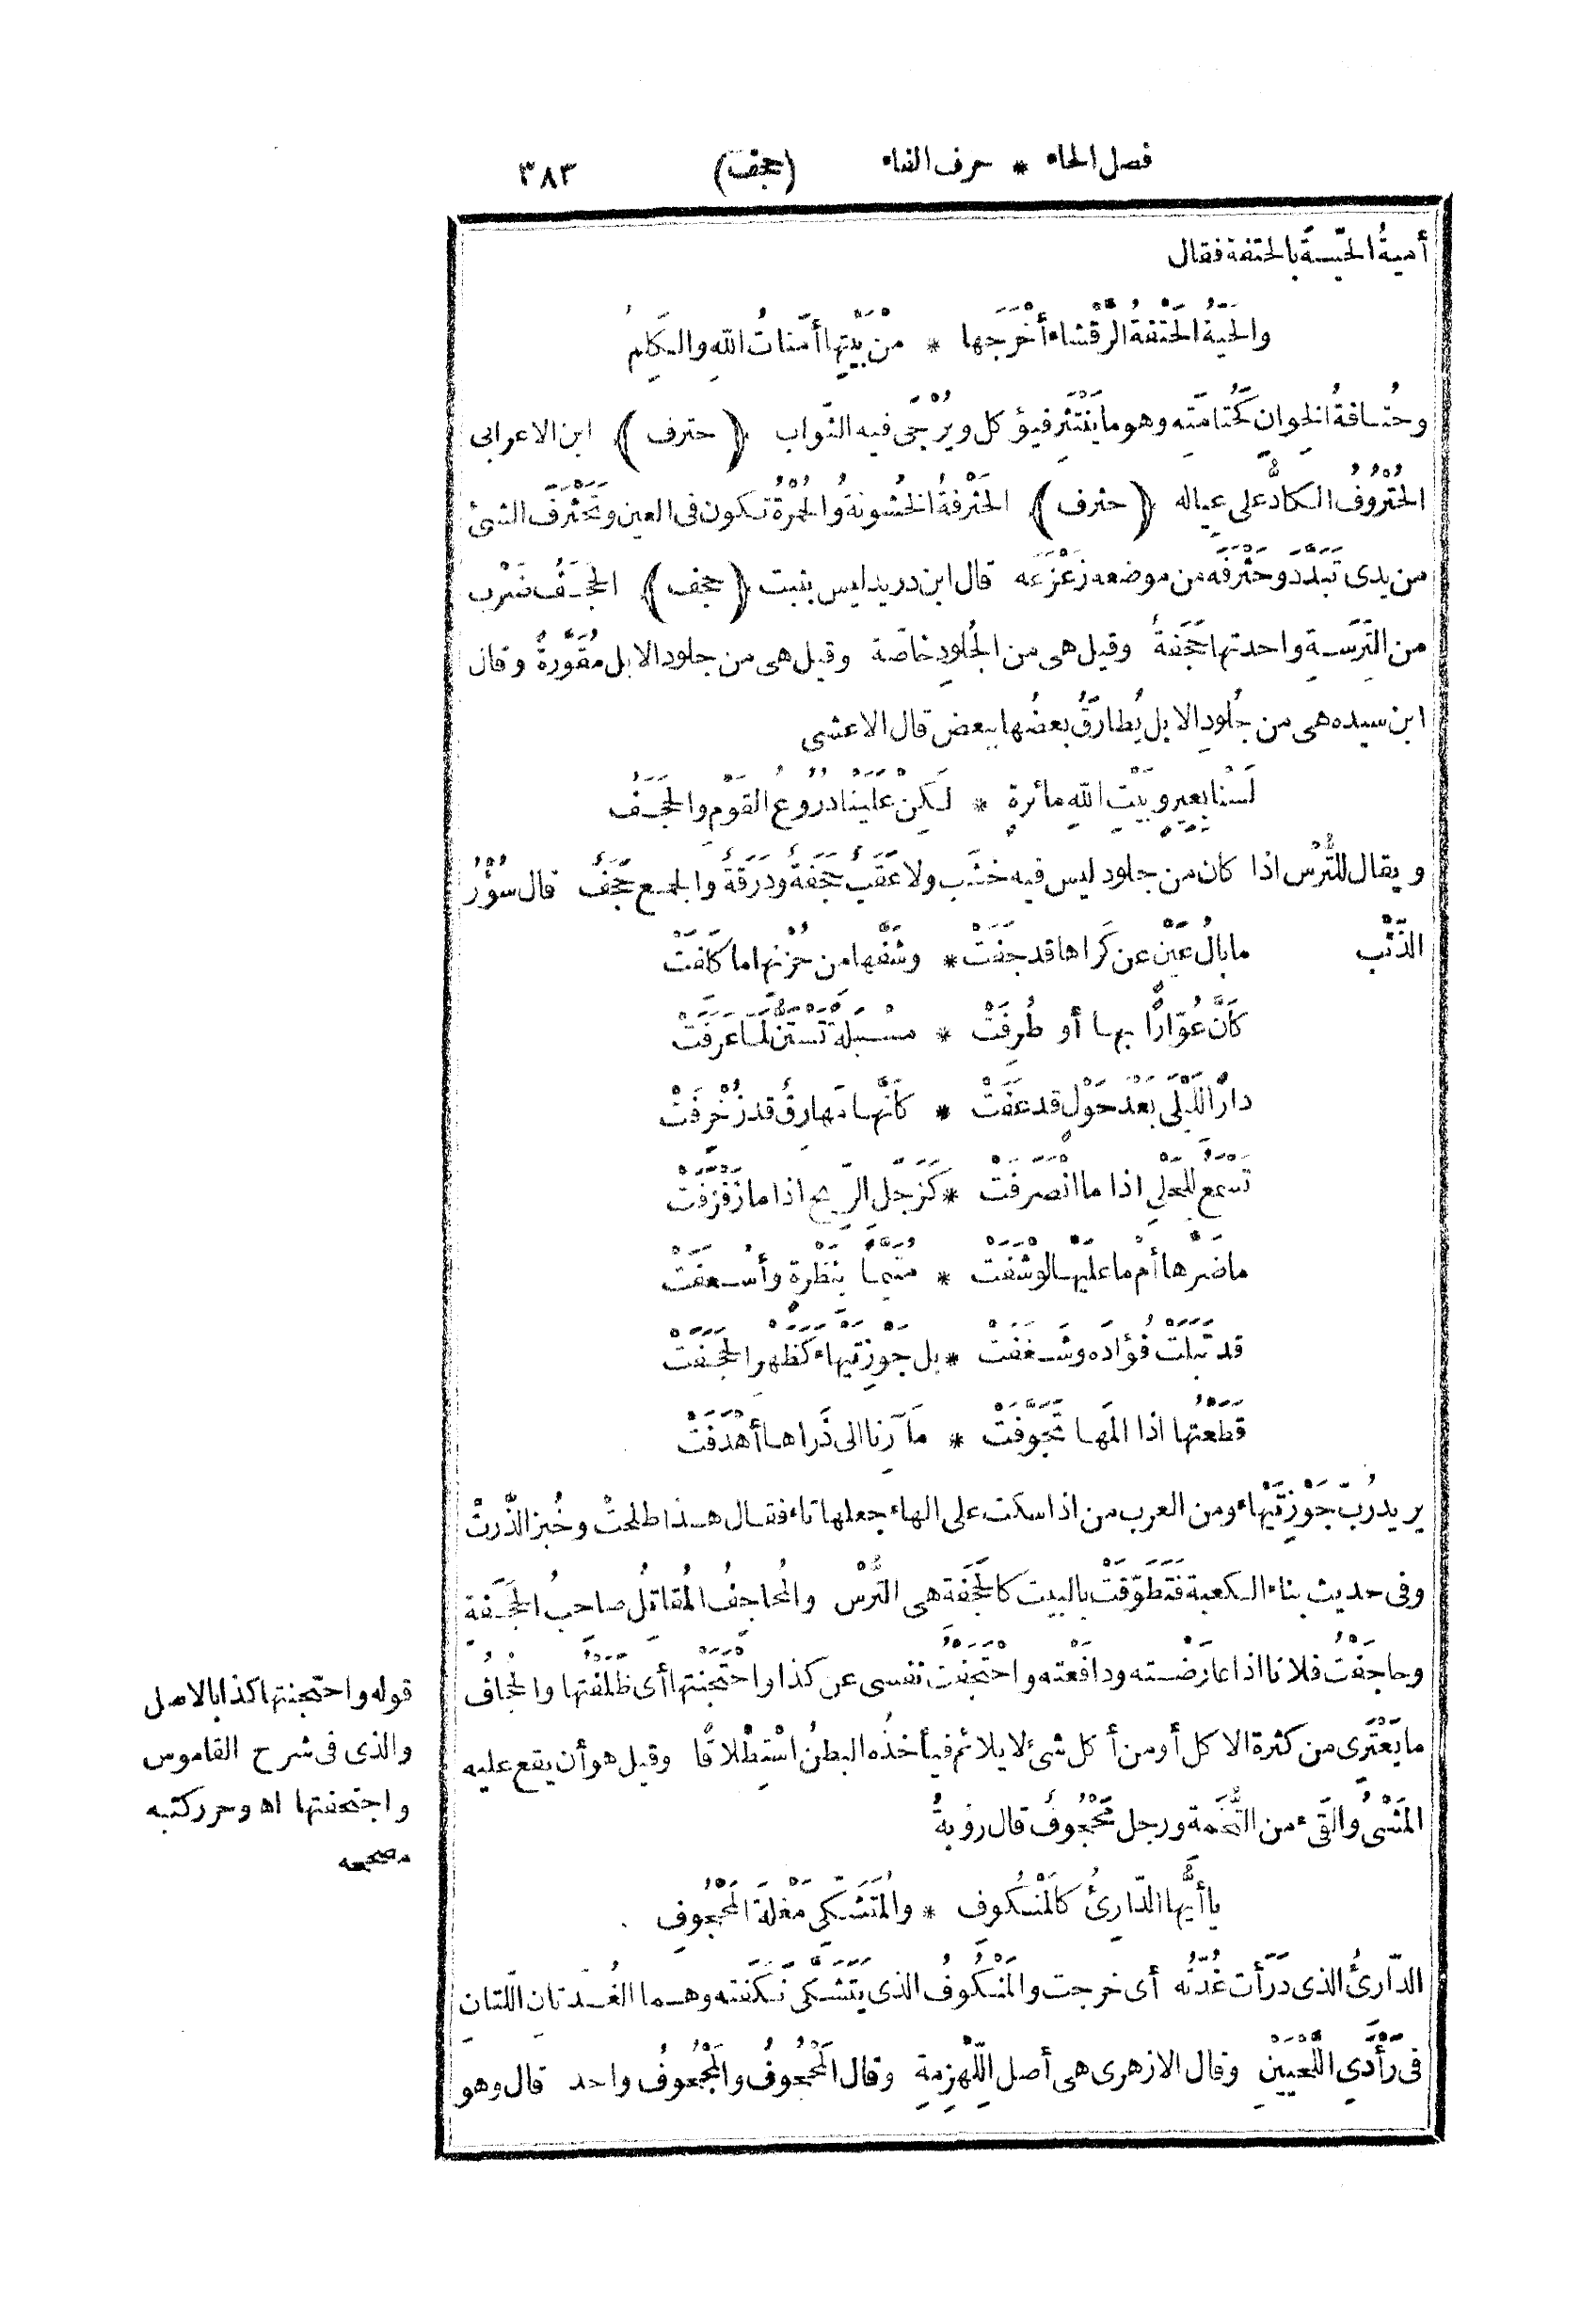 فصل الحاء * حرف الفاء (حجف) ٣٨٣
أميةُ الحيّةَ بالحتفة فقال
والحَيّةُ الحَتْفةُ الرَّقْشاء أَخْرَجَها * منْ بَيْتِها أَمَناتُ اللهِ والكَلِمُ
وحُتافةُ الخِوانِ كَحُتامَتِه وهو ما يَنْتَثِر فيؤكل ويُرْجَى فيه الثَّواب ﴿ حترف ﴾ ابن الاعرابى
الحُتْرُوفُ الكادُّ على عِياله ﴿ حثرف ﴾ الحَثْرَفةُ الخُشونةُ والحُمْرةُ تكون فى العين وتَحَثْرَفَ الشئُ
من يدى تَبَدَّد وحَثْرَفَه من موضعه زَعْزَعَه قال ابن دريد ليس بثبت ﴿ حجف ﴾ الحَجَفُ ضَرْب
من التِّرَسةِ واحدتها حَجَفةٌ وقيل هى من الجُلودِ خاصّة وقيل هى من جلود الابل مُقَوَّرةً وقال
ابن سيده هى من جُلودِ الابل يُطارَقُ بعضُها ببعض قال الاعشى
لَسْنا بِعِيرٍ وبَيْتِ اللهِ مائرةٍ * لَكِنْ عَلَيْنا دُرُوعُ القَوْمِ والحَجَفُ
ويقال للتُّرْس اذا كان من جلود ليس فيه خشَب ولا عَقَبٌ حَجَفةٌ ودَرَقةٌ والجمع حَجَفٌ قال سؤْرُ
الذِّئْب ما بالُ عَيْنٍ عن كَراها قد جَفَتْ * وشَفَّها من حُزْنِها ما كَلِفَتْ
كأَنَّ عُوّارًا بها أو طُرِفَتْ * مسْبَلةً تَسْتَنُّ لَمّا عَرَفَتْ
دارًا لِلَيْلَى بَعْدَ حَوْلٍ قد عَفَتْ * كأَنَّها مَهارِقٌ قد زُخْرِفَتْ
تسمع للحَلْيِ اذا ما انْصَرَفَتْ * كَزَجَلِ الرِّيحِ اذا ما زَفْزَفَتْ
ما ضَرَّها أَمْ ما عَلَيْها لو شَفَتْ * مُتَيَّماً بِنَظْرةٍ وأَسْعَفَتْ
قد تَبَلَتْ فُؤادَه وشَغَفَتْ * بل جَوْزِ تَيْهاء كَظَهْرِ الحَجَفَتْ
قَطَعْتُها اذا المَها تَجَوَّفَتْ * مَآرِنا الى ذَراها أَهْدَفَتْ
يريد رُبَّ جَوْزِ تَيْهاء ومن العرب من اذا سكت على الهاء جعلها تاء فقال هذا طلحتْ وخُبز الذُّرتْ
وفى حديث بناء الكعبة فتَطَوَّقَتْ بالبيت كالحَجَفَة هى التُّرْس والمُحاجِفُ المُقاتِلُ صاحبُ الحَجَفةِ
وحاجَفْتُ فلانا اذا عارَضْته ودافَعْته واحْتَجَفْتُ نفسى عن كذا واحْتَجَنْتها أى ظَلَفْتُها والحُجافُ
ما يَعْتَرِى من كثرة الاكل أو من أكل شئ لا يلائم فيأخذُه البطنُ اسْتِطْلاقًا وقيل هو أن يقع عليه
المَشْىُ والقَىءُ من التُّخَمة ورجل مَحْجُوفٌ قال رؤبةُ
يا أيُّها الدّارِئُ كالمَنْكُوفِ * والمُتَشَكِّي مَغْلةَ المَحْجُوفِ
الدّارئُ الذى دَرَأَت غُدّتُه أى خرجت والمَنْكُوفُ الذى يَتَشَكَّى نَكَفَتَه وهما الغُدّتان اللّتانِ
فى رَأْدَيِ اللَّحْيَيْنِ وقال الازهرى هى أصل اللِّهْزِمةِ وقال المَحْجُوفُ والمَجْحُوفُ واحد قال وهو
قوله واحتجنتها كذا بالاصل
والذى فى شرح القاموس
واجتحفتها اه وحرر كتبه
مصححه